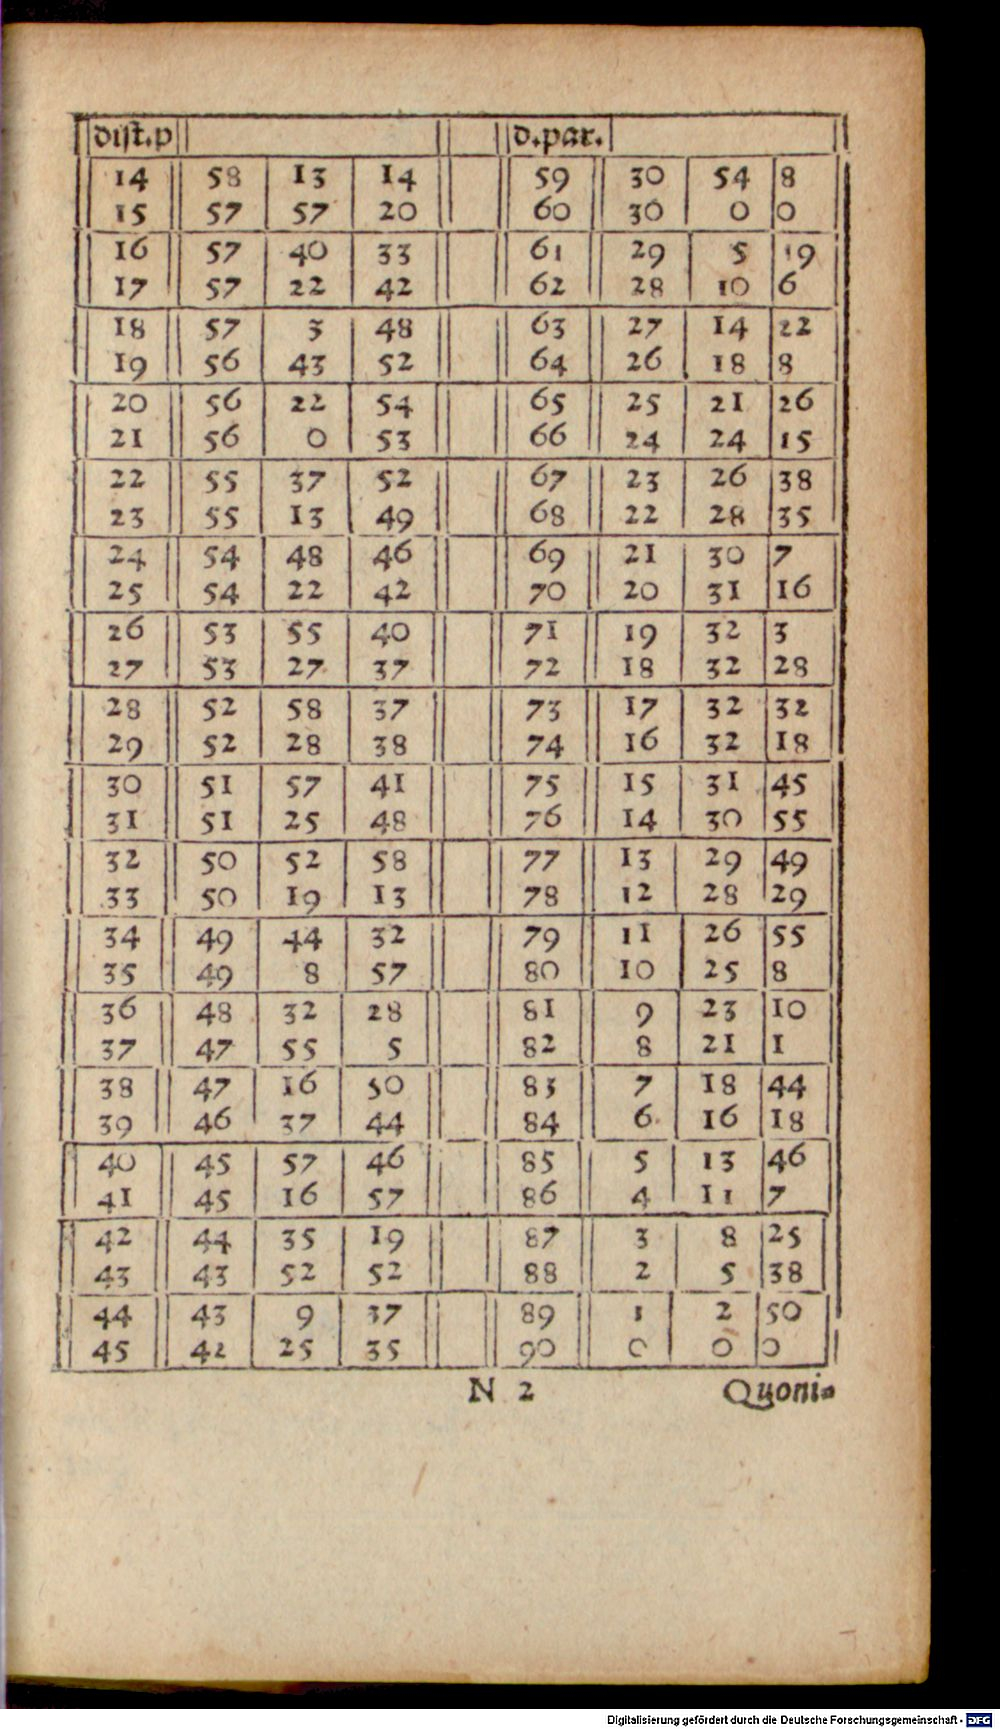 dist.p d.par.
14 58 13 14 59 30 54 8
15 57 57 20 60 30 0 0
16 57 40 33 61 29 5 19
17 57 22 42 62 28 10 6
18 57 3 48 63 27 14 22
19 56 43 52 64 26 18 8
20 56 22 54 65 25 21 26
21 56 0 53 66 24 24 15
22 55 37 52 67 23 26 38
23 55 13 49 68 22 28 35
24 54 48 46 69 21 30 7
25 54 22 42 70 20 31 16
26 53 55 40 71 19 32 3
27 53 27 37 72 18 32 28
28 52 58 37 73 17 32 32
29 52 28 38 74 16 32 18
30 51 57 41 75 15 31 45
31 51 25 48 76 14 30 55
32 50 52 58 77 13 29 49
33 50 19 13 78 12 28 29
34 49 44 32 79 11 26 55
35 49 8 57 80 10 25 8
36 48 32 28 81 9 23 10
37 47 55 5 82 8 21 1
38 47 16 50 83 7 18 44
39 46 37 44 84 6 16 18
40 45 57 46 85 5 13 46
41 45 16 57 86 4 11 7
42 44 35 19 87 3 8 25
43 43 52 52 88 2 5 38
44 43 9 37 89 1 2 50
45 42 25 35 90 0 0 0
N 2 Quoni-
Digitalisierung gefördert durch die Deutsche Forschungsgemeinschaft - DFG